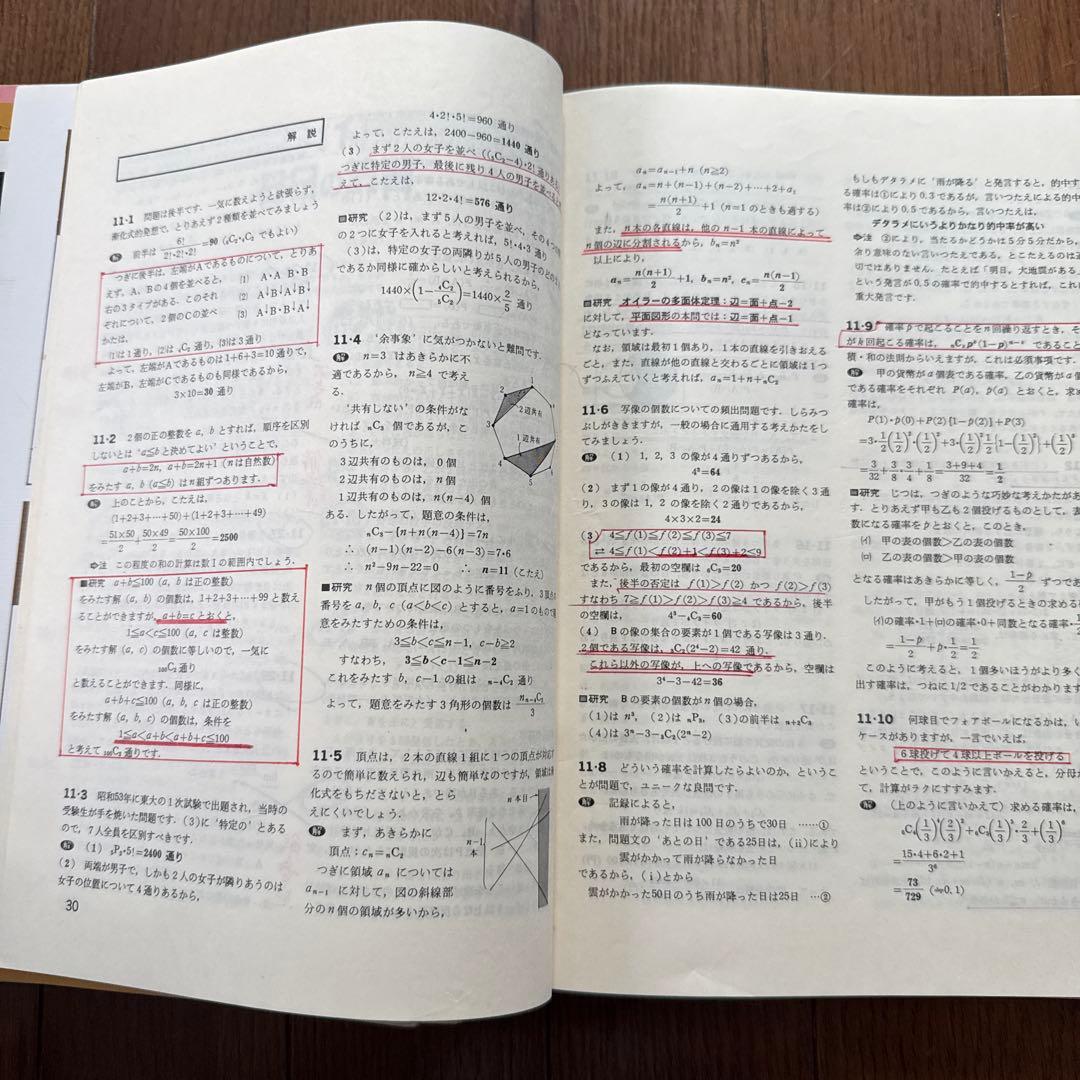 解 説
11・1 問題は後半です．一気に数えようと欲張らず，
漸化式的発想で，とりあえず2種類を並べてみましょう
解 前半は 6!/(2!・2!・2!)=90 (₆C₂・₄C₂ でもよい)
つぎに後半は，左端がAであるものについて，とりあ
えず，A，Bの4個を並べると， (1) A・A B・B
右の3タイプがある．このそれ (2) A↓B A↓B↓
ぞれについて，2個のCの並べ (3) A↓B・B↓A↓
かたは，
(1)は1通り，(2)は ₄C₂ 通り，(3)は3通り
よって，左端がAであるものは1+6+3=10通りで，
左端がB，左端がCであるものも同様であるから，
3×10=30 通り
11・2 2個の正の整数を a, b とすれば，順序を区別
しないとは ‘a≦b と決めてよい’ ということで，
a+b=2n, a+b=2n+1 (n は自然数)
をみたす a, b (a≦b) は n 組ずつあります．
解 上のことから，こたえは，
(1+2+3+…+50)+(1+2+3+…+49)
=51×50/2+50×49/2=50×100/2=2500
注 この程度の和の計算は数Ⅰの範囲内でしょう．
研究 a+b≦100 (a, b は正の整数)
をみたす解 (a, b) の個数は，1+2+3+…+99 と数え
ることができますが，a+b=c とおくと，
1≦a<c≦100 (a, c は整数)
をみたす解 (a, c) の個数に等しいので，一気に
₁₀₀C₂ 通り
と数えることができます．同様に，
a+b+c≦100 (a, b, c は正の整数)
をみたす解 (a, b, c) の個数は，条件を
1≦a<a+b<a+b+c≦100
と考えて ₁₀₀C₃ 通りです．
11・3 昭和53年に東大の1次試験で出題され，当時の
受験生が手を焼いた問題です．(3)に ‘特定の’ とある
ので，7人全員を区別すべきです．
解 (1) ₅P₂・5!=2400 通り
(2) 両端が男子で，しかも2人の女子が隣りあうのは
女子の位置について4通りあるから，
30
4・2!・5!=960 通り
よって，こたえは，2400−960=1440 通り
(3) まず2人の女子を並べ ((₅C₂−4)・2! 通り
つぎに特定の男子，最後に残り4人の男子を並べ
えて，こたえは，
12・2・4!=576 通り
研究 (2)は，まず5人の男子を並べ，その4つの
の2つに女子を入れると考えれば，5!・4・3 通り
(3)は，特定の女子の両隣りが5人の男子の
であるか同様に確からしいと考えられるから，
1440×(1−₄C₂/₅C₂)=1440×2/5 通り
11・4 ‘余事象’ に気がつかないと難問です．
解 n=3 はあきらかに不
適であるから，n≧4 で考え
る．
‘共有しない’ の条件がな
ければ ₙC₃ 個であるが，こ
のうちに，
3辺共有のものは，0個
2辺共有のものは，n 個
1辺共有のものは，n(n−4) 個
ある．したがって，題意の条件は，
ₙC₃−[n+n(n−4)]=7n
∴ (n−1)(n−2)−6(n−3)=7・6
∴ n²−9n−22=0 ∴ n=11 (こたえ)
2辺共有
1辺共有
3
4
5
研究 n 個の頂点に図のように番号をふり，3頂点の
番号を a, b, c (a<b<c) とすると，a=1 のもので題
意をみたすための条件は，
3≦b<c≦n−1, c−b≧2
すなわち，3≦b<c−1≦n−2
これをみたす b, c−1 の組は ₙ₋₄C₂ 通り
よって，題意をみたす3角形の個数は n・ₙ₋₄C₂/3
11・5 頂点は，2本の直線1組に1つの頂点が対応す
るので簡単に数えられ，辺も簡単なのですが，領域は漸
化式をもちださないと，とら
えにくいでしょう．
解 まず，あきらかに
頂点：cₙ=ₙC₂
つぎに領域 aₙ については
aₙ₋₁ に対して，図の斜線部
分の n 個の領域が多いから，
n 本目
n−1
本
aₙ=aₙ₋₁+n (n≧2)
よって，aₙ=n+(n−1)+(n−2)+…+2+a₁
=n(n+1)/2+1 (n=1 のときも適する)
また，n 本の各直線は，他の n−1 本の直線によって
n 個の辺に分割されるから，bₙ=n²
以上により，
aₙ=n(n+1)/2+1, bₙ=n², cₙ=n(n−1)/2
研究 オイラーの多面体定理：辺=面+点−2
に対して，平面図形の本問では：辺=面+点−1
となっています．
なお，領域は最初1個あり，1本の直線を引きおえる
ごと，また，直線が他の直線と交わるごとに領域は1つ
ずつふえていくと考えれば，aₙ=1+n+ₙC₂
11・6 写像の個数についての頻出問題です．しらみつ
ぶしがききますが，一般の場合に通用する考えかたをし
てみましょう．
解 (1) 1，2，3 の像が4通りずつあるから，
4³=64
(2) まず1の像が4通り，2の像は1の像を除く3通
り，3の像は1，2の像を除く2通りであるから，
4×3×2=24
(3) 4≦f(1)≦f(2)≦f(3)≦7
⇄ 4≦f(1)<f(2)+1<f(3)+2≦9
であるから，最初の空欄は ₆C₃=20
また，後半の否定は f(1)>f(2) かつ f(2)>f(3)
すなわち 7≧f(1)>f(2)>f(3)≧4 であるから，後半
の空欄は， 4³−₄C₃=60
(4) B の像の集合の要素が1個である写像は3通り．
2個である写像は，₃C₂(2⁴−2)=42 通り．
これら以外の写像が，上への写像であるから，空欄は
3⁴−3−42=36
研究 B の要素の個数が n 個の場合，
(1)は n³，(2)は ₙP₃，(3)の前半は ₙ₊₂C₃
(4)は 3ⁿ−3−₃C₂(2ⁿ−2)
11・8 どういう確率を計算したらよいのか，というこ
とが問題で，ユニークな良問です．
解 記録によると，
雨が降った日は100日のうちで30日 ……①
また，問題文の ‘あとの日’ である25日は，(ii)により
雲がかかって雨が降らなかった日
であるから，(i)とから
雲がかかった50日のうち雨が降った日は25日 …②
もしもデタラメに ‘雨が降る’ と発言すると，的中す
る確率は①により0.3であるが，言いつたえによる的中
率は②により0.5であるから，言いつたえは，
デタラメにいうよりかなり的中率が高い
注 ②により，当たるかどうかは5分5分だから，
余り意味のない言いつたえである，ととらえるのは適
切ではありません．たとえば「明日，大地震がある」
という発言が0.5の確率で的中するとすれば，これは
重大発言です．
11・9 確率 p で起こることを n 回繰り返すとき，そ
が k 回起こる確率は，ₙCₖpᵏ(1−p)ⁿ⁻ᵏ であること
積・和の法則からいえますが，これは必須事項です．
解 甲の貨幣が a 個表である確率，乙の貨幣が a 個
である確率をそれぞれ P(a), p(a) とおくと，求め
確率は，
P(1)・p(0)+P(2)[1−p(2)]+P(3)
=3・1/2(1/2)²・(1/2)²+3・(1/2)²1/2[1−(1/2)²]+(1/2)³
=3/32+3/8・3/4+1/8=(3+9+4)/32=1/2
研究 じつは，つぎのような巧妙な考えかたがあ
す．とりあえず甲も乙も2個投げるものとして，表
数になる確率を p とおくと，このとき，
(イ) 甲の表の個数>乙の表の個数
(ロ) 乙の表の個数>甲の表の個数
となる確率はあきらかに等しく，(1−p)/2 ずつで
したがって，甲がもう1個投げるときの求める確
(イ)の確率・1+(ロ)の確率・0+同数となる確率・
=(1−p)/2+p・1/2=1/2
このように考えると，1個多いほうがより多く
出す確率は，つねに1/2であることがわかります
11・10 何球目でフォアボールになるかは，い
ケースがありますが，一言でいえば，
6球投げて4球以上ボールを投げる
ということで，このように言いかえると，分母が
て，計算がラクにすすみます．
解 (上のように言いかえて) 求める確率は，
₆C₄(1/3)⁴(2/3)²+₆C₅(1/3)⁵・2/3+(1/3)⁶
=(15・4+6・2+1)/3⁶
=73/729 (≒0.1)